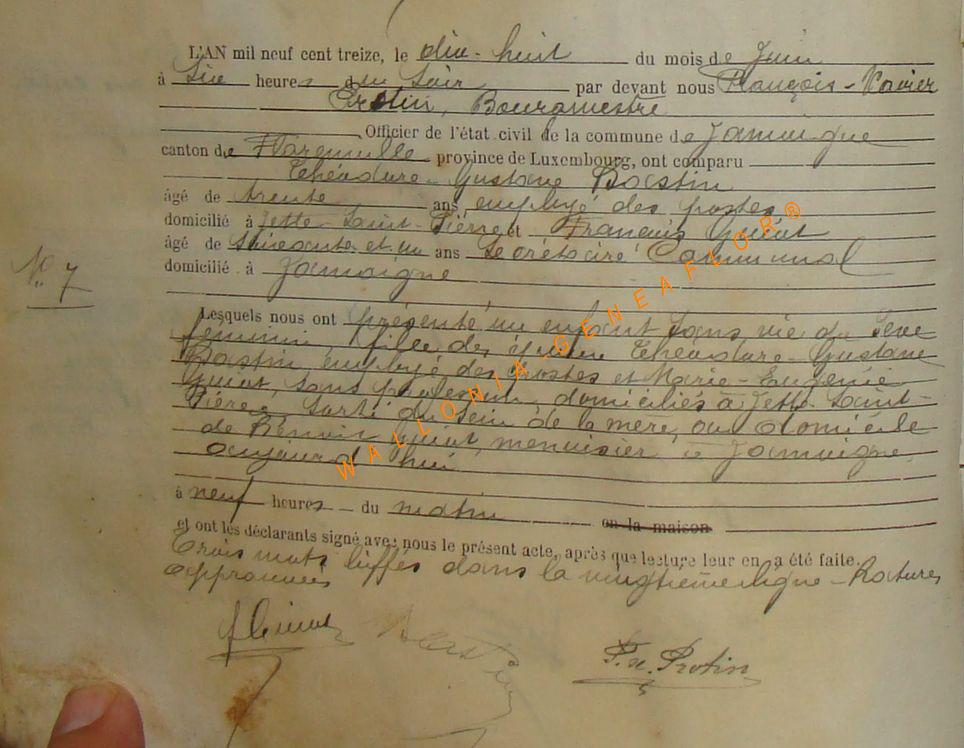 L'AN mil neuf cent treize, le dix-huit du mois de Juin
à Six heures du Soir par devant nous François-Xavier
Protin, Bourgmestre
Officier de l'état civil de la commune de Jamoigne
canton de Florenville province de Luxembourg, ont comparu
Théodore-Gustave Bastin
âgé de trente ans employé des postes
domicilié à Jette-Saint-Pierre et François
âgé de Soixante et un ans Secrétaire Communal
domicilié à Jamoigne
N° 7
Lesquels nous ont présenté un enfant sans vie du sexe
féminin, fille des époux Théodore-Gustave
Bastin, employé des postes et Marie-Eugénie
sans profession, domiciliés à Jette-Saint-
Pierre, sorti du sein de la mère, au domicile
de menuisier à Jamoigne,
aujourd'hui
à neuf heures du matin en la maison
et ont les déclarants signé avec nous le présent acte, après que lecture leur en a été faite.
Trois mots biffés dans la vingtième ligne - Ratures
approuvées
Bastin
F. X. Protin
WALLONIA-GENEAFLOR®